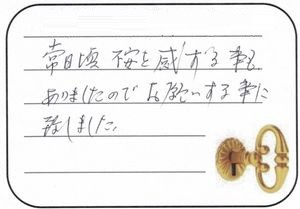 常日頃 不安を感する事も
ありましたので お願いする事に
致しました。